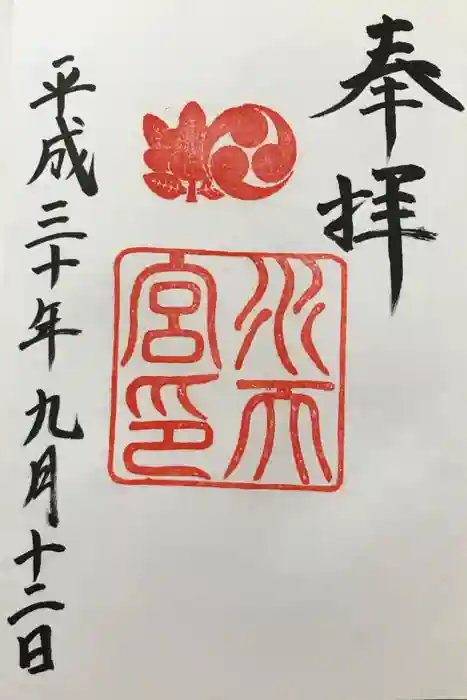 奉拝
水天
宮印
平成三十年九月十二日